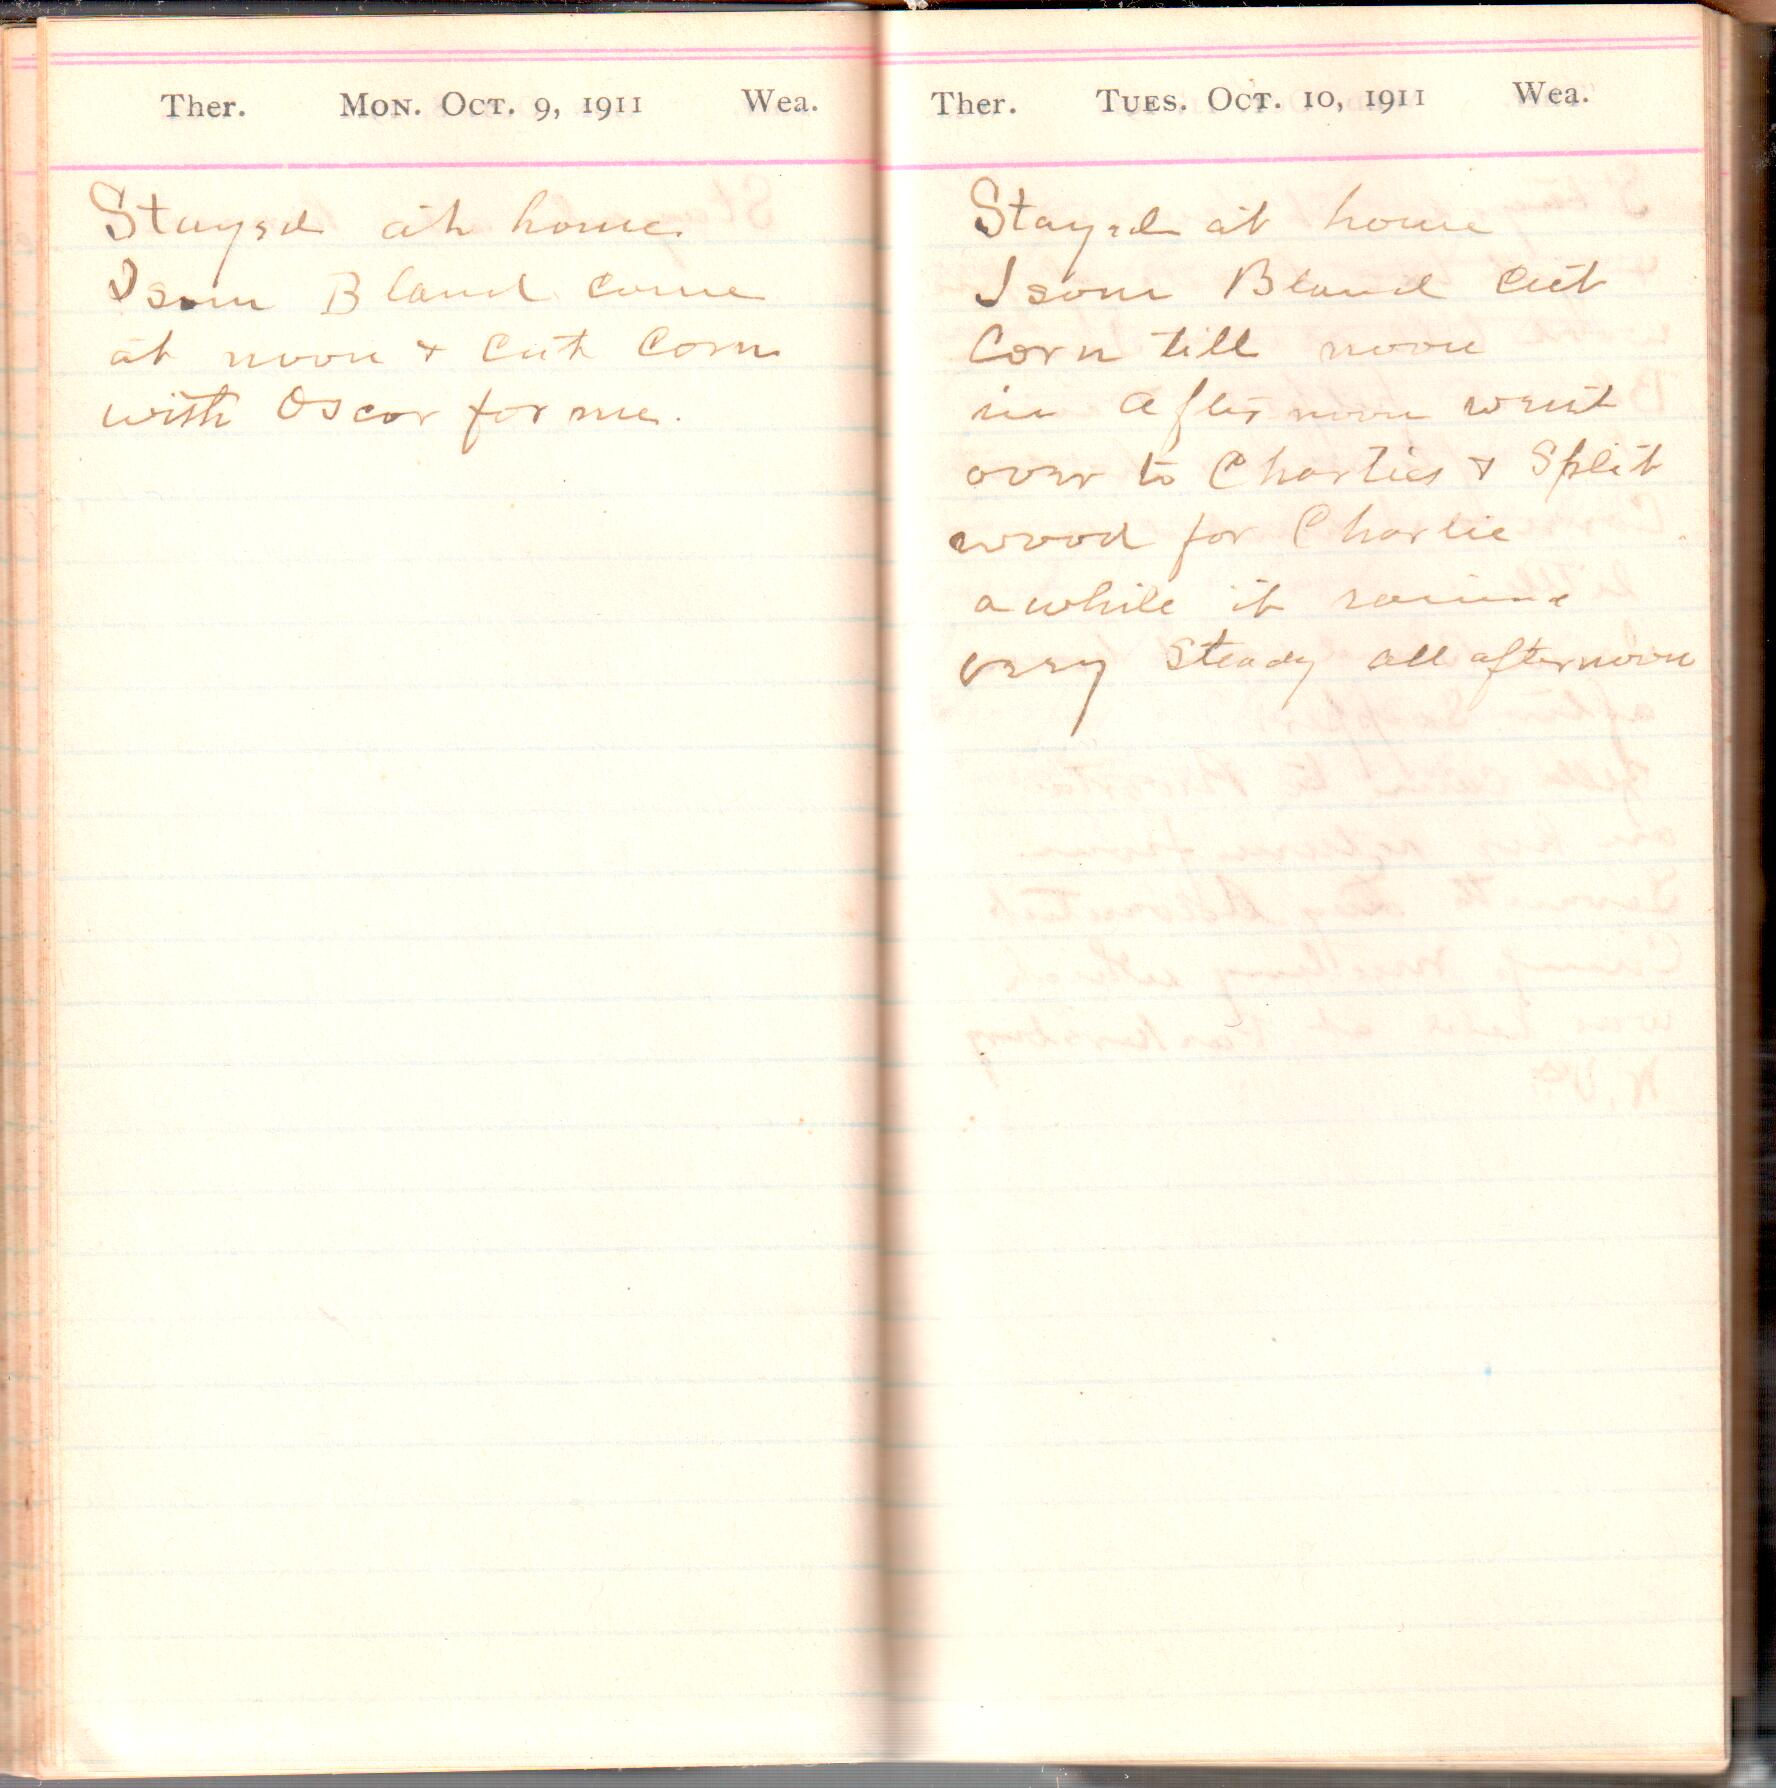 Ther. Mon. Oct. 9, 1911 Wea.
Stayed at home
Isom Bland came
at noon & Cut Corn
with Oscar for me.
Ther. Tues. Oct. 10, 1911 Wea.
Stayed at home
Isom Bland Cut
Corn till noon
in afternoon went
over to Charlies & Split
wood for Charlie
a while it raining
very Steady all afternoon